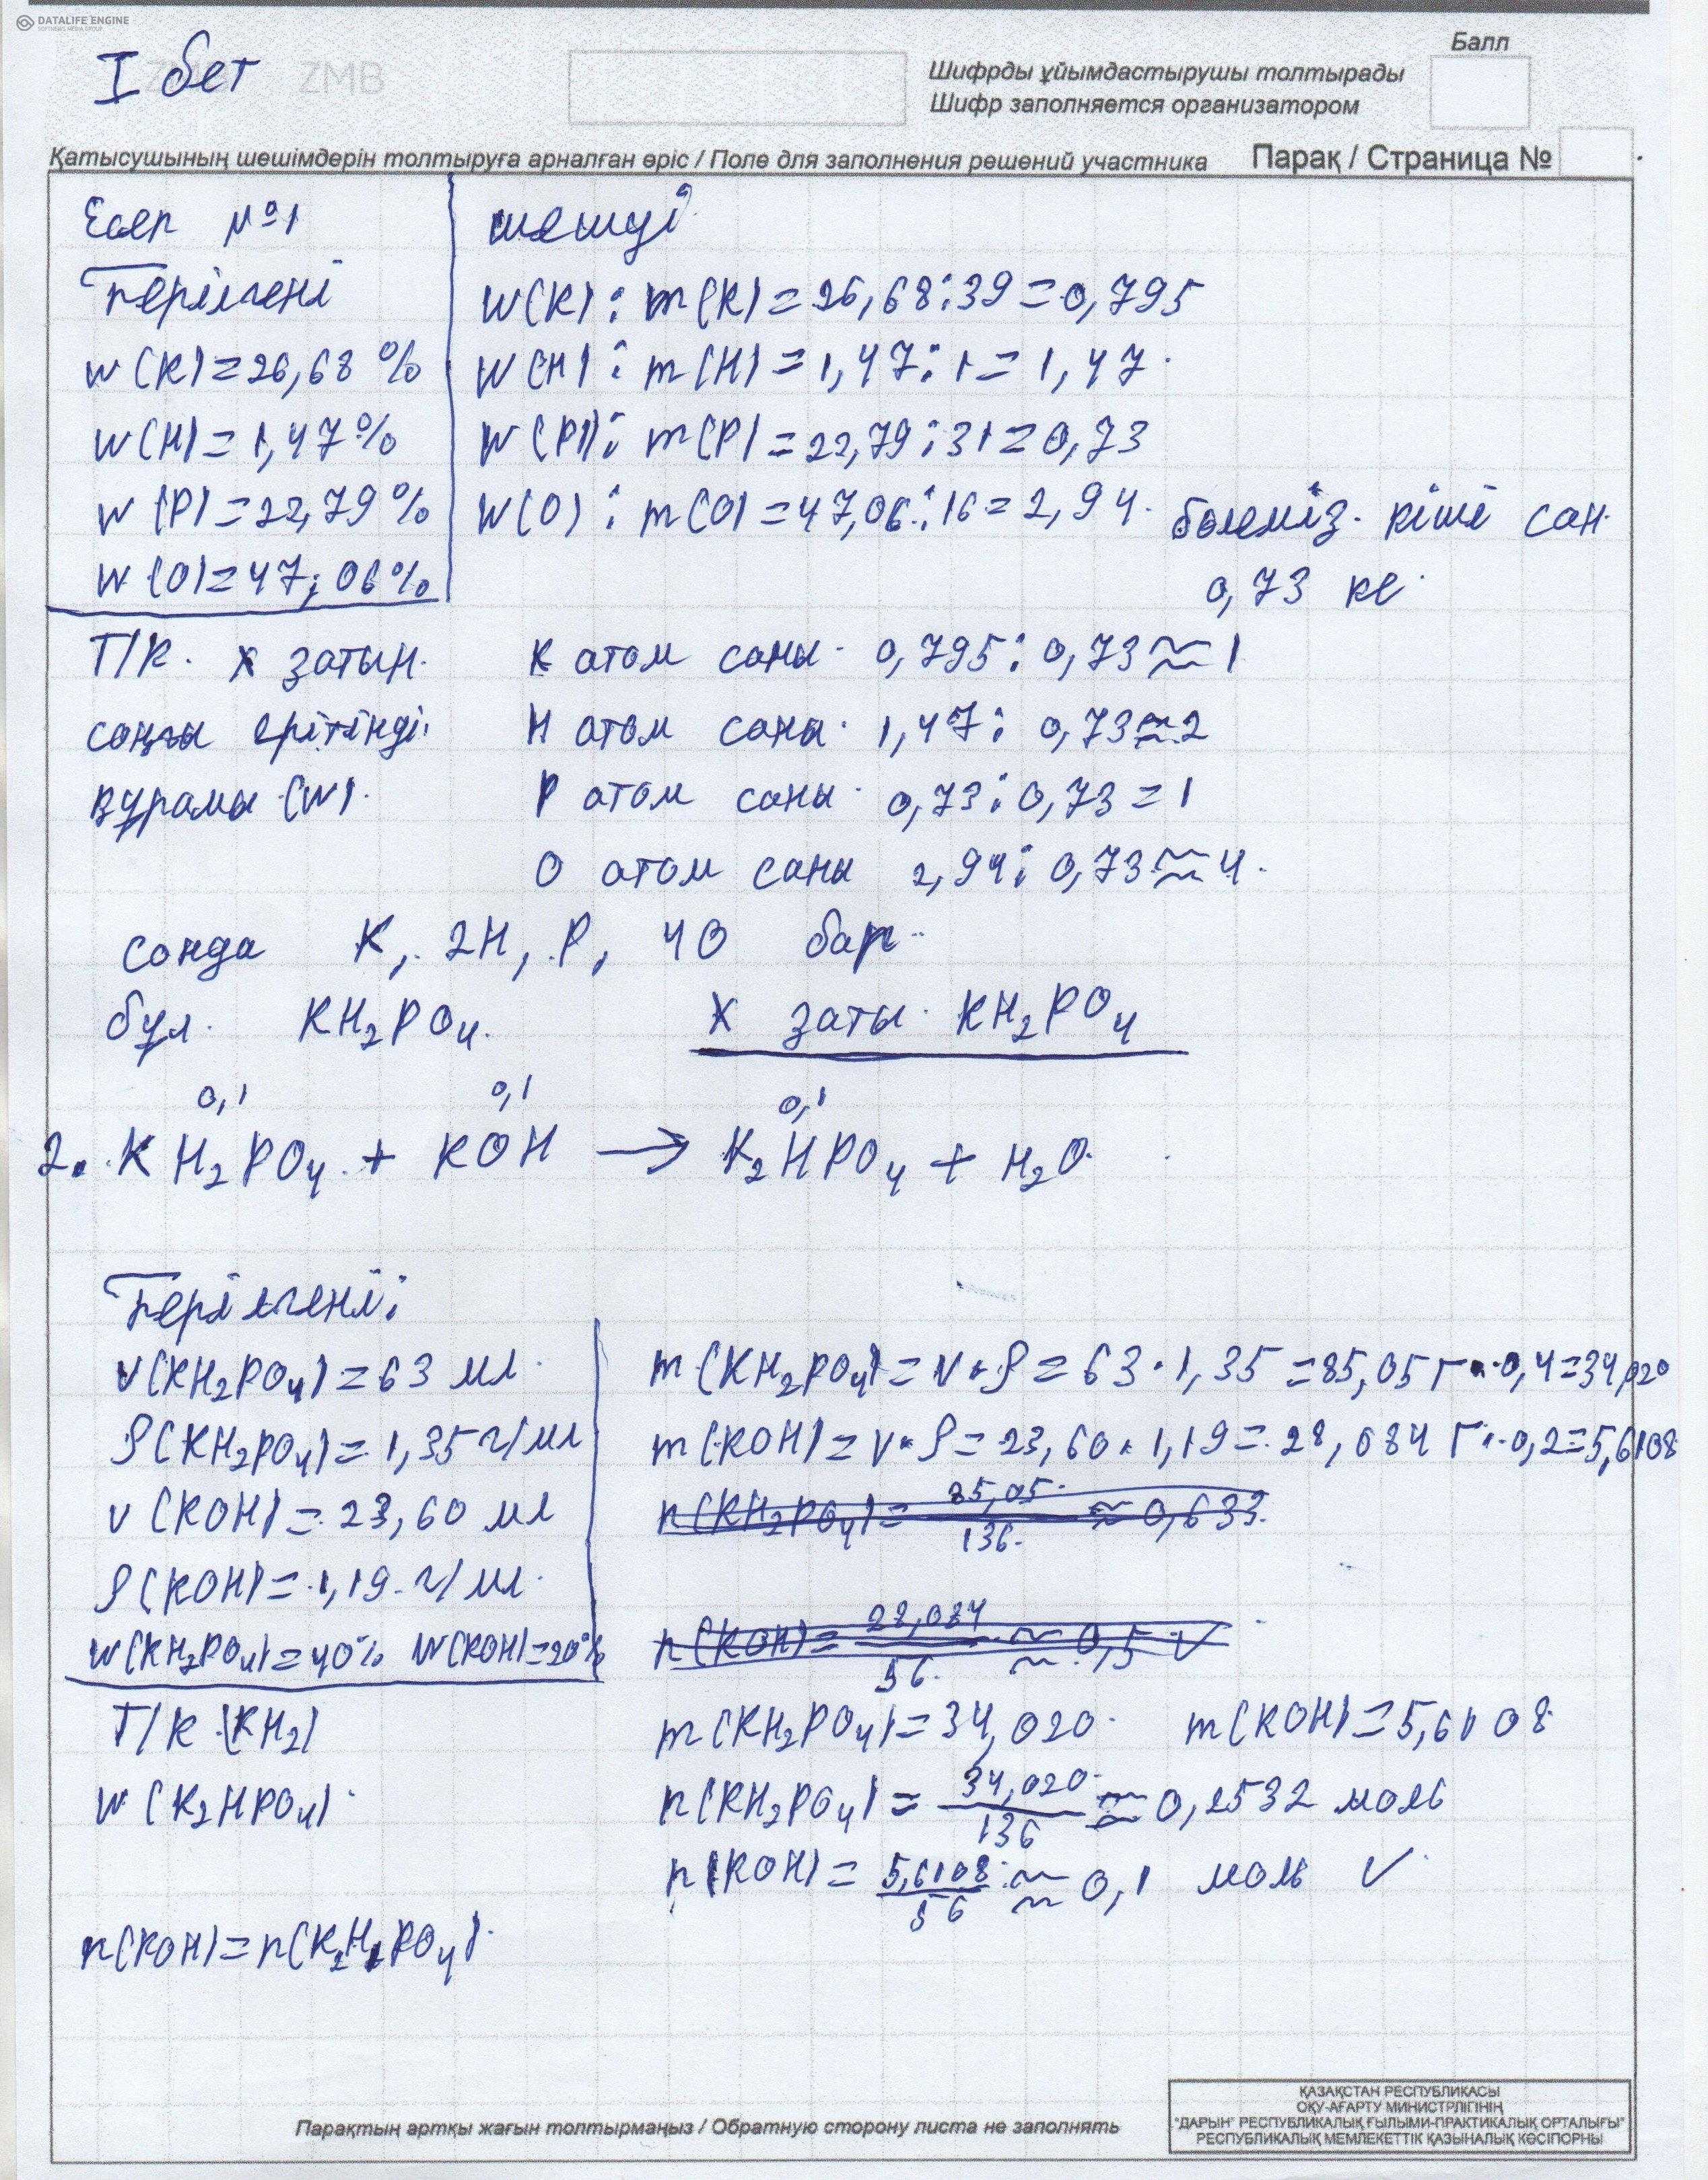 DATALIFE ENGINE
SOFTNEWS MEDIA GROUP
I бет
ZMB
Балл
Шифрды ұйымдастырушы толтырады
Шифр заполняется организатором
Қатысушының шешімдерін толтыруға арналған өріс / Поле для заполнения решений участника
Парақ / Страница №
Есеп №1
шешуі
Берілгені
W(K) : m(K) = 26,68 : 39 = 0,795
W(K) = 26,68 %
W(H) : m(H) = 1,47 : 1 = 1,47
W(H) = 1,47 %
W(P) : m(P) = 22,79 : 31 = 0,73
W(P) = 22,79 %
W(O) : m(O) = 47,06 : 16 = 2,94 бөлеміз кіші сан
W(O) = 47,06 %
0,73 ке
Т/К. X затын
K атом саны 0,795 : 0,73 ≈ 1
соңғы ерітінді
H атом саны 1,47 : 0,73 ≈ 2
құрамы (W)
P атом саны 0,73 : 0,73 = 1
O атом саны 2,94 : 0,73 ≈ 4
сонда K, 2H, P, 4O бар
бұл KH₂PO₄
X заты KH₂PO₄
0,1 0,1 0,1
2. KH₂PO₄ + KOH → K₂HPO₄ + H₂O
Берілгені:
V(KH₂PO₄) = 63 мл
m(KH₂PO₄) = V · ρ = 63 · 1,35 = 85,05 г · 0,4 = 34,020
ρ(KH₂PO₄) = 1,35 г/мл
m(KOH) = V · ρ = 23,60 · 1,19 = 28,084 г · 0,2 = 5,6108
V(KOH) = 23,60 мл
n(KH₂PO₄) = 85,05 / 136 ≈ 0,633
ρ(KOH) = 1,19 г/мл
n(KOH) = 28,084 / 56 ≈ 0,5 V
W(KH₂PO₄) = 40% W(KOH) = 20%
Т/К (KH₂)
m(KH₂PO₄) = 34,020 m(KOH) = 5,6108
W(K₂HPO₄)
n(KH₂PO₄) = 34,020 / 136 ≈ 0,2532 моль
n(KOH) = 5,6108 / 56 ≈ 0,1 моль V
n(KOH) = n(K₂HPO₄)
Парақтың артқы жағын толтырмаңыз / Обратную сторону листа не заполнять
ҚАЗАҚСТАН РЕСПУБЛИКАСЫ
ОҚУ-АҒАРТУ МИНИСТРЛІГІНІҢ
"ДАРЫН" РЕСПУБЛИКАЛЫҚ ҒЫЛЫМИ-ПРАКТИКАЛЫҚ ОРТАЛЫҒЫ"
РЕСПУБЛИКАЛЫҚ МЕМЛЕКЕТТІК ҚАЗЫНАЛЫҚ КӘСІПОРНЫ